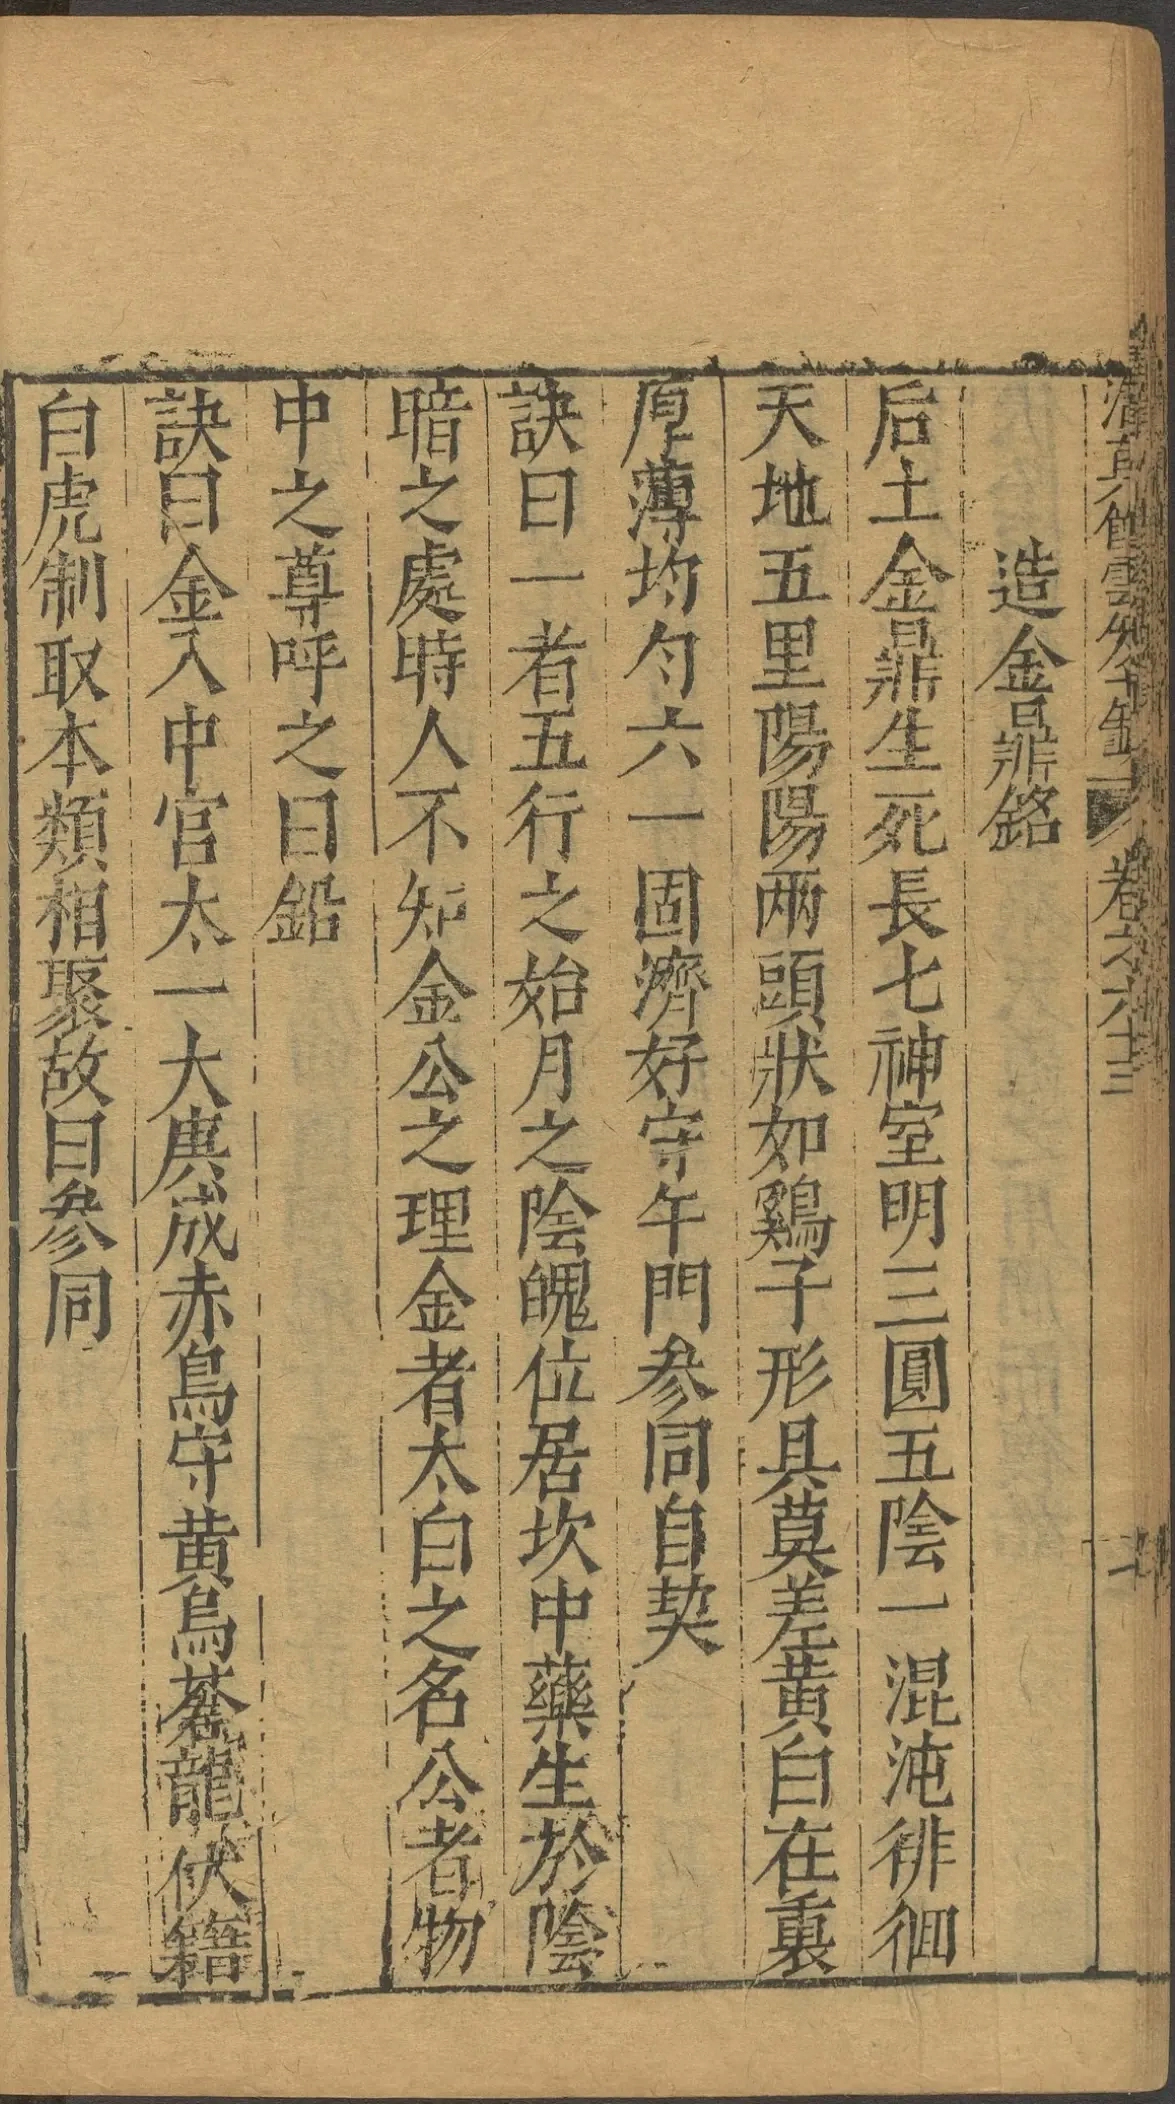 清眞館雲笈七籤 卷之六十三 一
造金鼎銘
后土金鼎生死長七神室明三圓五陰一混沌徘徊
天地五里陽陽兩頭狀如鷄子形具莫差黄白在裏
厚薄均勻六一固濟好守午門參同自契
訣曰一者五行之始月之陰魄位居坎中藥生於陰
暗之處時人不知金公之理金者太白之名公者物
中之尊呼之曰鉛
訣曰金入中官太一大庚成赤鳥守黄烏蒼龍伏籍
白虎制取本類相聚故曰參同